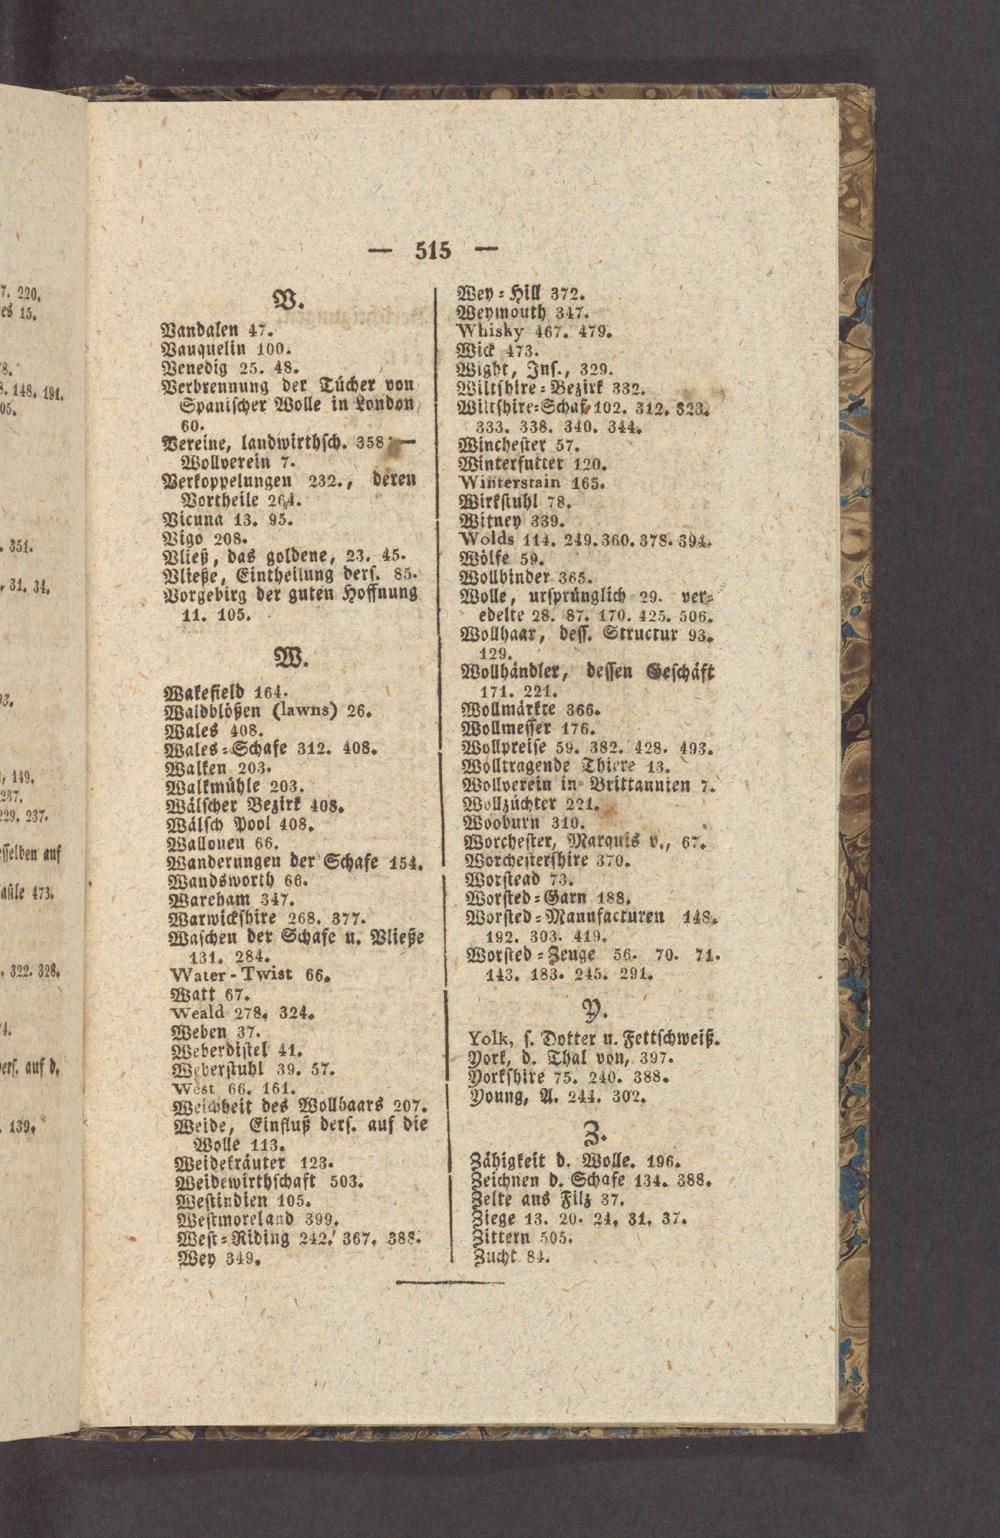 — 515 —
V.
Vandalen 47.
Vauquelin 100.
Venedig 25. 48.
Verbrennung der Tücher von
Spanischer Wolle in London
60.
Vereine, landwirthsch. 358 —
Wollverein 7.
Verkoppelungen 232., deren
Vortheile 264.
Vicuna 13. 95.
Vigo 208.
Vließ, das goldene, 23. 45.
Vließe, Eintheilung ders. 85.
Vorgebirg der guten Hoffnung
11. 105.
W.
Wakefield 164.
Waldblößen (lawns) 26.
Wales 408.
Wales-Schafe 312. 408.
Walken 203.
Walkmühle 203.
Wälscher Bezirk 408.
Wälsch Pool 408.
Wallonen 66.
Wanderungen der Schafe 154.
Wandsworth 66.
Wareham 347.
Warwickshire 268. 377.
Waschen der Schafe u. Vließe
131. 284.
Water-Twist 66.
Watt 67.
Weald 278. 324.
Weben 37.
Weberdistel 41.
Weberstuhl 39. 57.
West 66. 161.
Weichheit des Wollhaars 207.
Weide, Einfluß ders. auf die
Wolle 113.
Weidekräuter 123.
Weidewirthschaft 503.
Westindien 105.
Westmoreland 399.
West-Riding 242. 367. 388.
Wey 349.
Wey-Hill 372.
Weymouth 347.
Whisky 467. 479.
Wick 473.
Wight, Ins., 329.
Wiltshire-Bezirk 332.
Wiltshire-Schaf 102. 312. 323.
333. 338. 340. 344.
Winchester 57.
Winterfutter 120.
Winterstain 165.
Wirkstuhl 78.
Witney 339.
Wolds 114. 249. 360. 378. 394.
Wölfe 59.
Wollbinder 365.
Wolle, ursprünglich 29. ver-
edelte 28. 87. 170. 425. 506.
Wollhaar, dess. Structur 93.
129.
Wollhändler, dessen Geschäft
171. 221.
Wollmärkte 366.
Wollmesser 176.
Wollpreise 59. 382. 428. 493.
Wolltragende Thiere 13.
Wollverein in Brittannien 7.
Wollzüchter 221.
Wooburn 310.
Worchester, Marquis v., 67.
Worchestershire 370.
Worstead 73.
Worsted-Garn 188.
Worsted-Manufacturen 148.
192. 303. 419.
Worsted-Zeuge 56. 70. 71.
143. 183. 245. 291.
Y.
Yolk, s. Dotter u. Fettschweiß.
York, d. Thal von, 397.
Yorkshire 75. 240. 388.
Young, A. 244. 302.
Z.
Zähigkeit d. Wolle. 196.
Zeichnen d. Schafe 134. 388.
Zelte aus Filz 37.
Ziege 13. 20. 24. 31. 37.
Zittern 505.
Zucht 84.